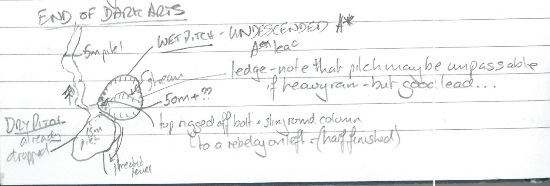 END OF DARK ARTS
5m pitch
WET PITCH - UNDESCENDED A*
A** lead
stream
ledge - note that pitch may be unpassable
if heavy rain - but good lead...
50m+??
DRY PITCH
already
dropped
15m
pitch
top rigged off bolt + sling round column
to a rebelay on left - (half finished)
level